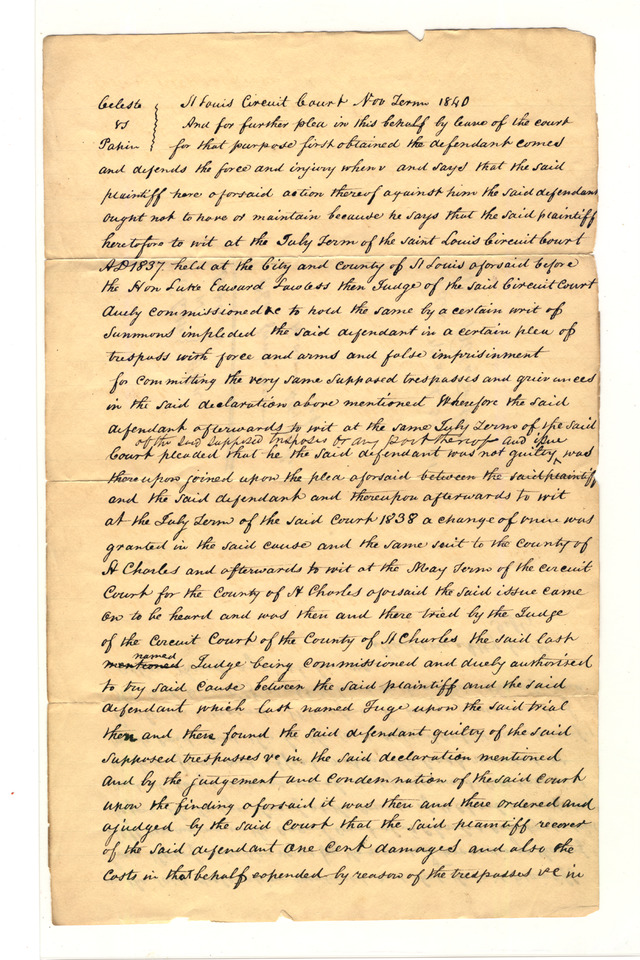 Celeste } St Louis Circuit Court Nov Term 1840
vs } And for further plea in this behalf by leave of the court
Papin } for that purpose first obtained the defendant comes
and defends the force and injury when &c and says that the said
plaintiff here aforsaid action thereof against him the said defendant
ought not to have or maintain because he says that the said plaintiff
heretofore to wit at the July Term of the saint Louis Circuit Court
AD 1837 held at the City and county of St Louis aforsaid before
the Hon Luke Edward Lawless then Judge of the said Circuit Court
duely commissioned &c to hold the same by a certain writ of
Summons impleded the said defendant in a certain plea of
trespass with force and arms and false imprisinment
for committing the very same supposed trespasses and grievances
in the said declaration above mentioned Wherefore the said
defendant afterwards to wit at the same July Term of the said
of the said supposed tresposes or any part thereof and issue
Court pleaded that he the said defendant was not guilty was
thereupon joined upon the plea aforsaid between the said plaintiff
and the said defendant and thereupon afterwards to wit
at the July Term of the said Court 1838 a change of venue was
granted in the said cause and the same sent to the County of
St Charles and afterwards to wit at the May Term of the circuit
Court for the County of St Charles aforsaid the said issue came
on to be heard and was then and there tried by the Judge
of the Circuit Court of the County of St Charles the said last
named
mentioned Judge being commissioned and duely authorised
to try said cause between the said plaintiff and the said
defendant which last named Juge upon the said trial
then and there found the said defendant guilty of the said
supposed trespasses &c in the said declaration mentioned
and by the judgement and condemnation of the said court
upon the finding aforsaid it was then and there ordered and
ajudged by the said Court that the said plaintiff recover
of the said defendant one cent damages and also the
costs in that behalf expended by reason of the trespasses &c in